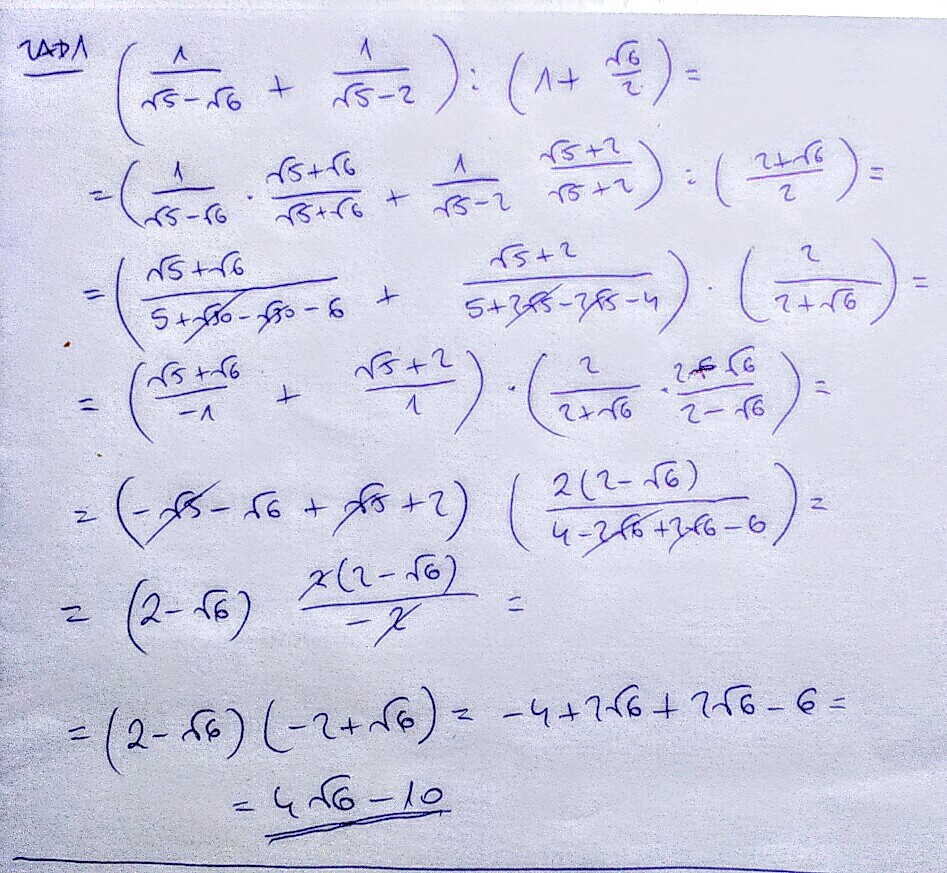 ZAD1 (1/(√5-√6) + 1/(√5-2)) : (1+ √6/2) =
= (1/(√5-√6) · (√5+√6)/(√5+√6) + 1/(√5-2) (√5+2)/(√5+2)) : ((2+√6)/2) =
= ((√5+√6)/(5+√30-√30-6) + (√5+2)/(5+2√5-2√5-4)) · (2/(2+√6)) =
= ((√5+√6)/-1 + (√5+2)/1) · (2/(2+√6) · (2-√6)/(2-√6)) =
= (-√5-√6+√5+2) (2(2-√6)/(4-2√6+2√6-6)) =
= (2-√6) 2(2-√6)/-2 =
= (2-√6)(-2+√6) = -4+2√6+2√6-6 =
= 4√6-10